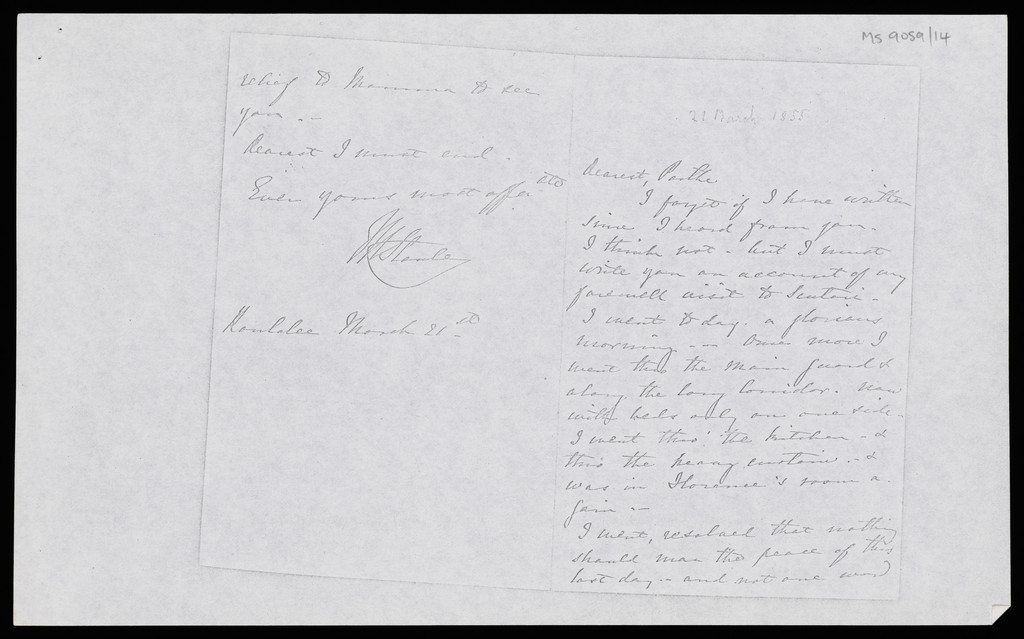 Ms 9059/14
relief to Mamma to see
you. —
Dearest I must end.
Ever yours most affecte
MStanley
Koulalee March 21st
21 March 1855
Dearest, Parthe
I forget if I have written
since I heard from you.
I think not - but I must
write you an account of my
farewell visit to Scutari -
I went to day. a glorious
morning -- Once more I
went thro the Main guard &
along the long Corridor. Now
with beds only on one side -
I went thro' the kitchen - &
thro the heavy curtain. - &
was in Florence's room a-
gain. -
I went, resolved that nothing
should mar the peace of this
last day - and not one word